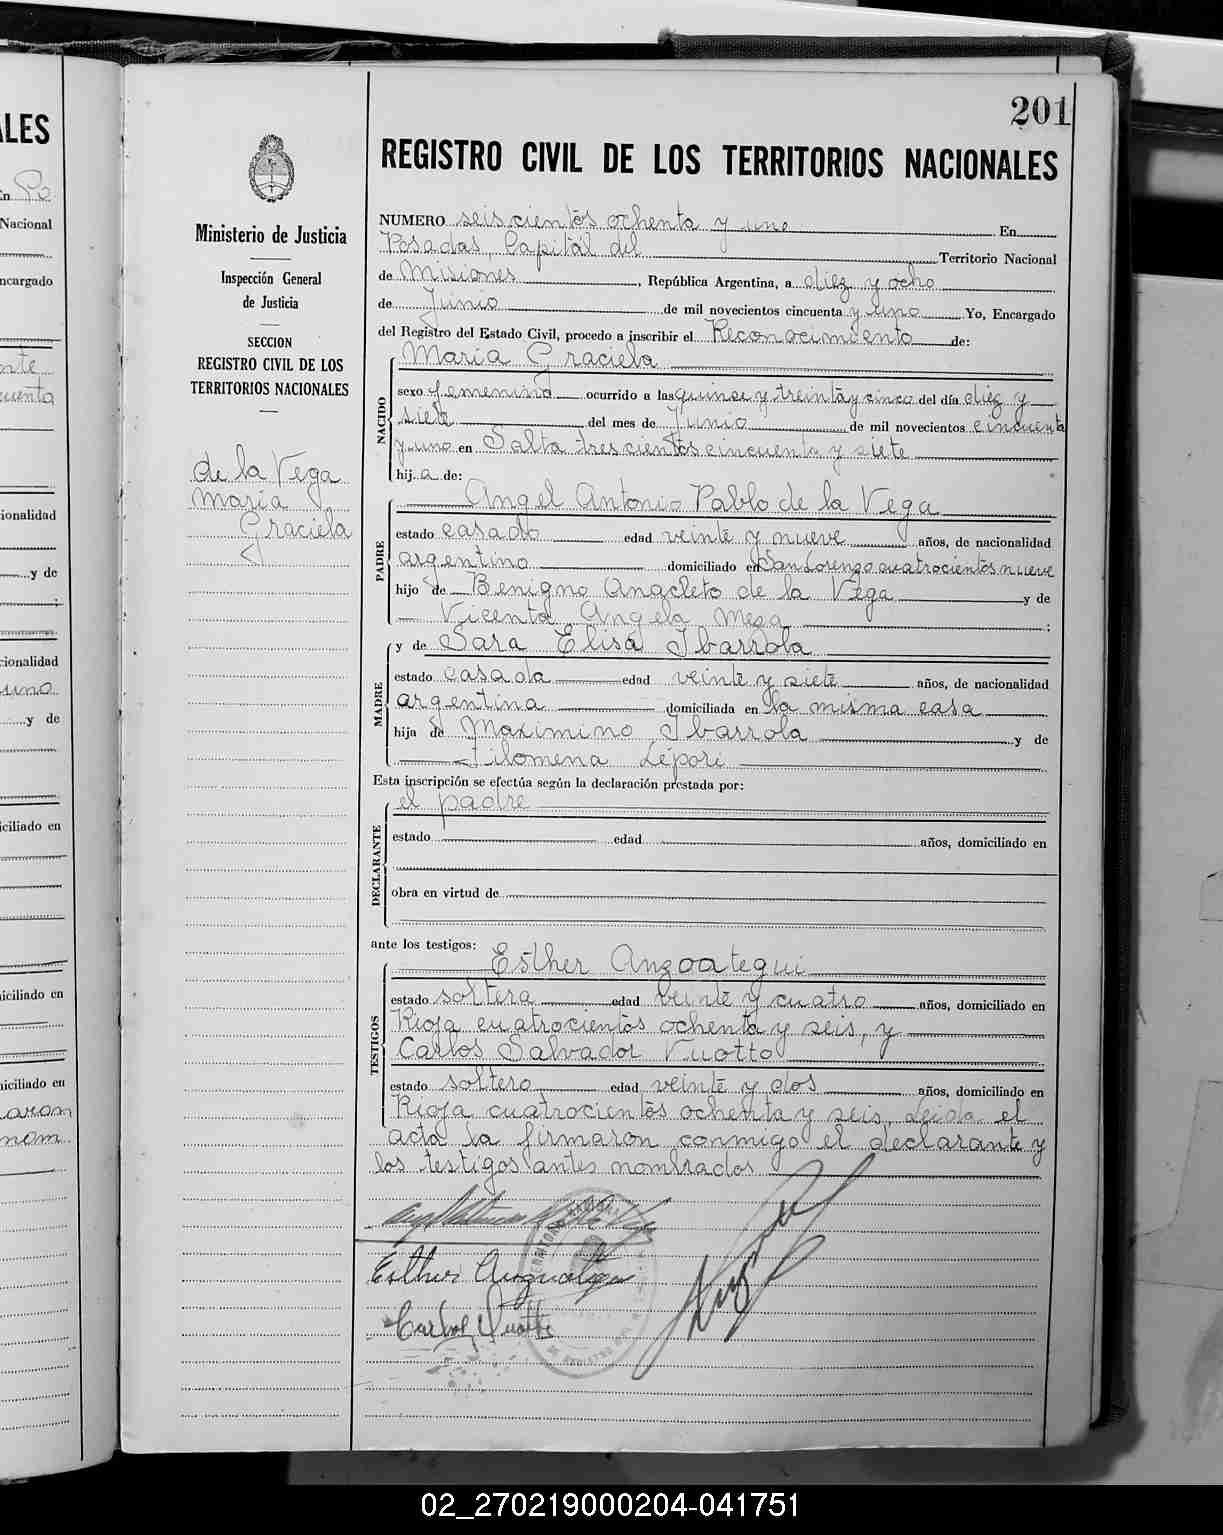 201
REGISTRO CIVIL DE LOS TERRITORIOS NACIONALES
Ministerio de Justicia
Inspección General
de Justicia
SECCION
REGISTRO CIVIL DE LOS
TERRITORIOS NACIONALES
de la Vega
Maria
Graciela
NUMERO seiscientos ochenta y uno En
Posadas, Capital del Territorio Nacional
de Misiones, República Argentina, a diez y ocho
de Junio de mil novecientos cincuenta y uno Yo, Encargado
del Registro del Estado Civil, procedo a inscribir el Reconocimiento de:
NACIDO
Maria Graciela
sexo femenino ocurrido a las quince y treinta y cinco del día diez y
siete del mes de Junio de mil novecientos cincuenta
y uno en Salta trescientos cincuenta y siete
hij a de:
PADRE
Angel Antonio Pablo de la Vega
estado casado edad veinte y nueve años, de nacionalidad
argentino domiciliado en San Lorenzo cuatrocientos nueve
hijo de Benigno Anacleto de la Vega y de
Vicenta Angela Meza ;
MADRE
y de Sara Elisa Ibarrola
estado casada edad veinte y siete años, de nacionalidad
argentina domiciliada en la misma casa
hija de Maximino Ibarrola y de
Filomena Lépori
Esta inscripción se efectúa según la declaración prestada por:
DECLARANTE
el padre
estado edad años, domiciliado en
obra en virtud de
ante los testigos:
TESTIGOS
Esther Anzoategui
estado soltera edad veinte y cuatro años, domiciliado en
Rioja cuatrocientos ochenta y seis, y
Carlos Salvador Vuotto
estado soltero edad veinte y dos años, domiciliado en
Rioja cuatrocientos ochenta y seis. Leida el
acta la firmaron conmigo el declarante y
los testigos antes nombrados
Esther Anzoategui
Carlos Vuotto
02_270219000204-041751